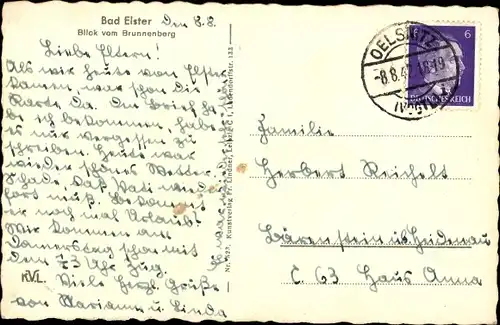 Bad Elster
Blick vom Brunnenberg
Den 8.8.
Liebe Eltern!
Als wir heute von Elster
kamen, war schon die
Karte da. Den Brief habe
ich bekommen, habe
es nur vergessen zu
schreiben. Heute war
wieder schönes Wetter.
Schade, daß Vati wieder
fort muß. Bekommt
er noch mal Urlaub?
Wir kommen am
Donnerstag schon mit
dem 73 Uhr Zug.
Viele herzl. Grüße
von Mariann u. Linda
KVL
Nr. 527. Kunstverlag Fr. Lindner, Leipzig C 1,
OELSNITZ
-8.8.42.18-19
6
DEUTSCHES REICH
Familie
Herbert Reichelt
Bärenstein üb. Heidenau
C 63 Haus Anna